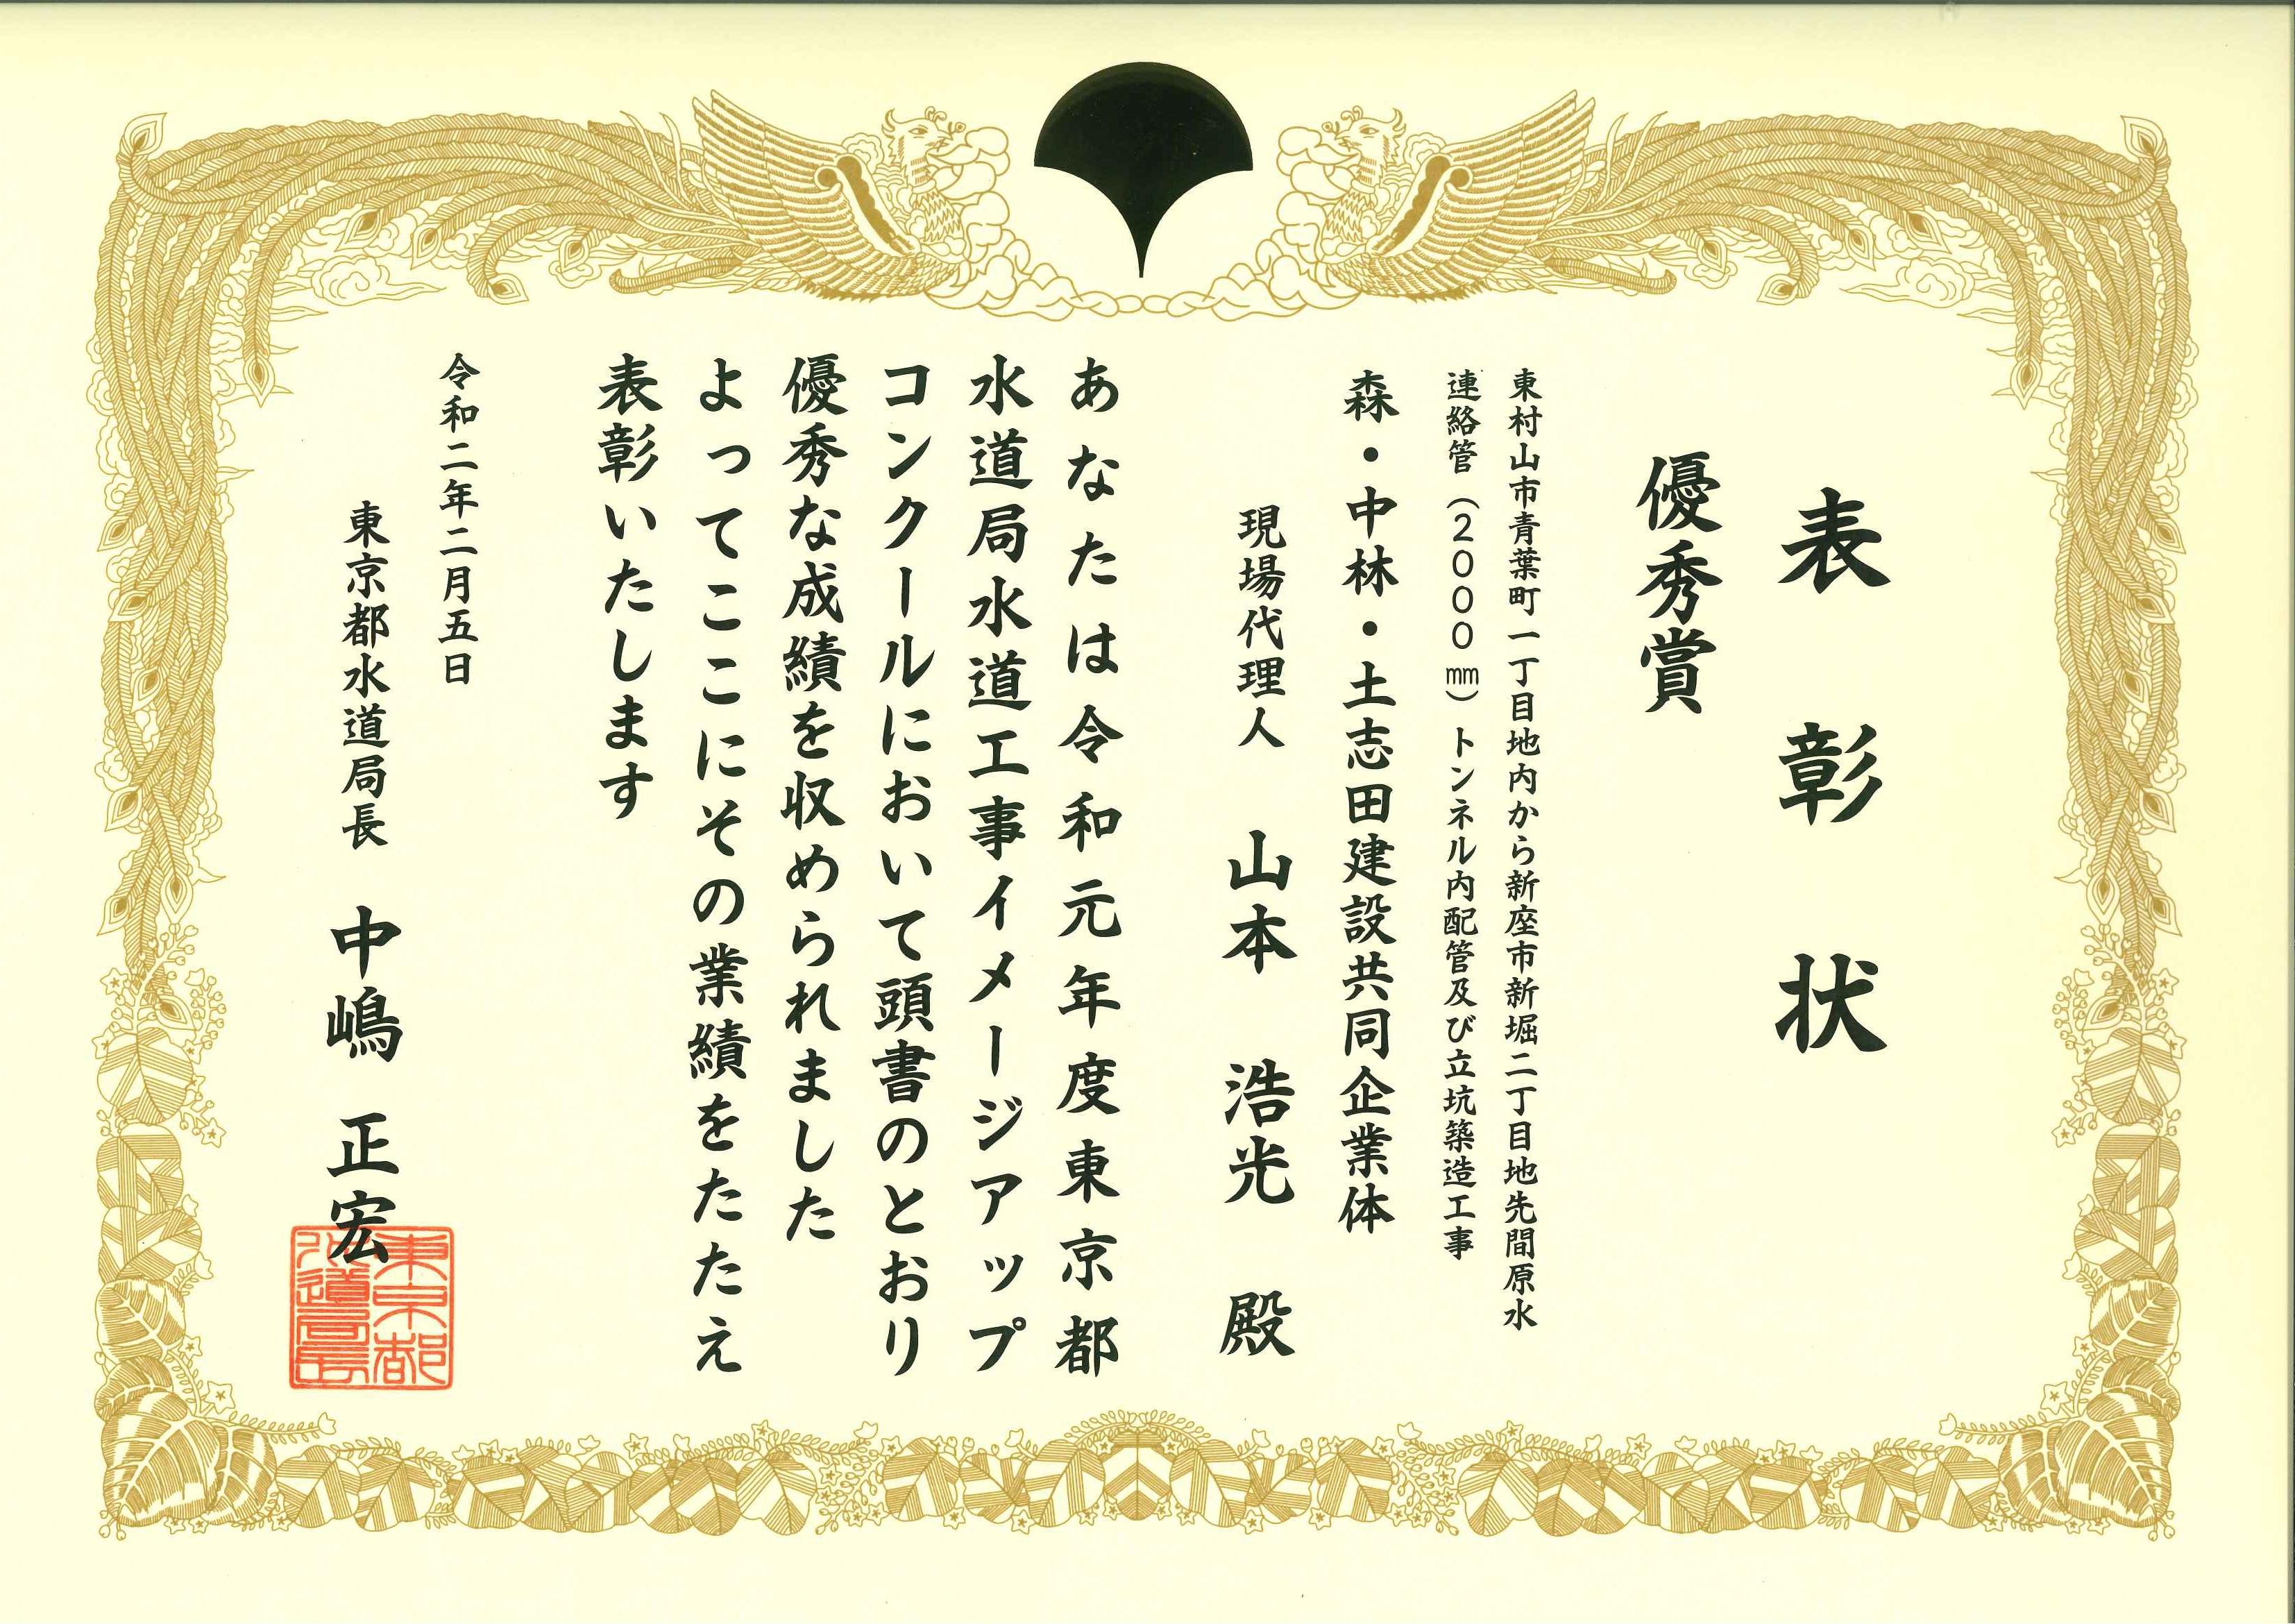 表彰状
優秀賞
東村山市青葉町一丁目地内から新座市新堀二丁目地先間原水
連絡管（2000㎜）トンネル内配管及び立坑築造工事
森・中林・土志田建設共同企業体
現場代理人 山本 浩光 殿
あなたは令和元年度東京都
水道局水道工事イメージアップ
コンクールにおいて頭書のとおり
優秀な成績を収められました
よってここにその業績をたたえ
表彰いたします
令和二年二月五日
東京都水道局長 中嶋 正宏
東京都
水道局長